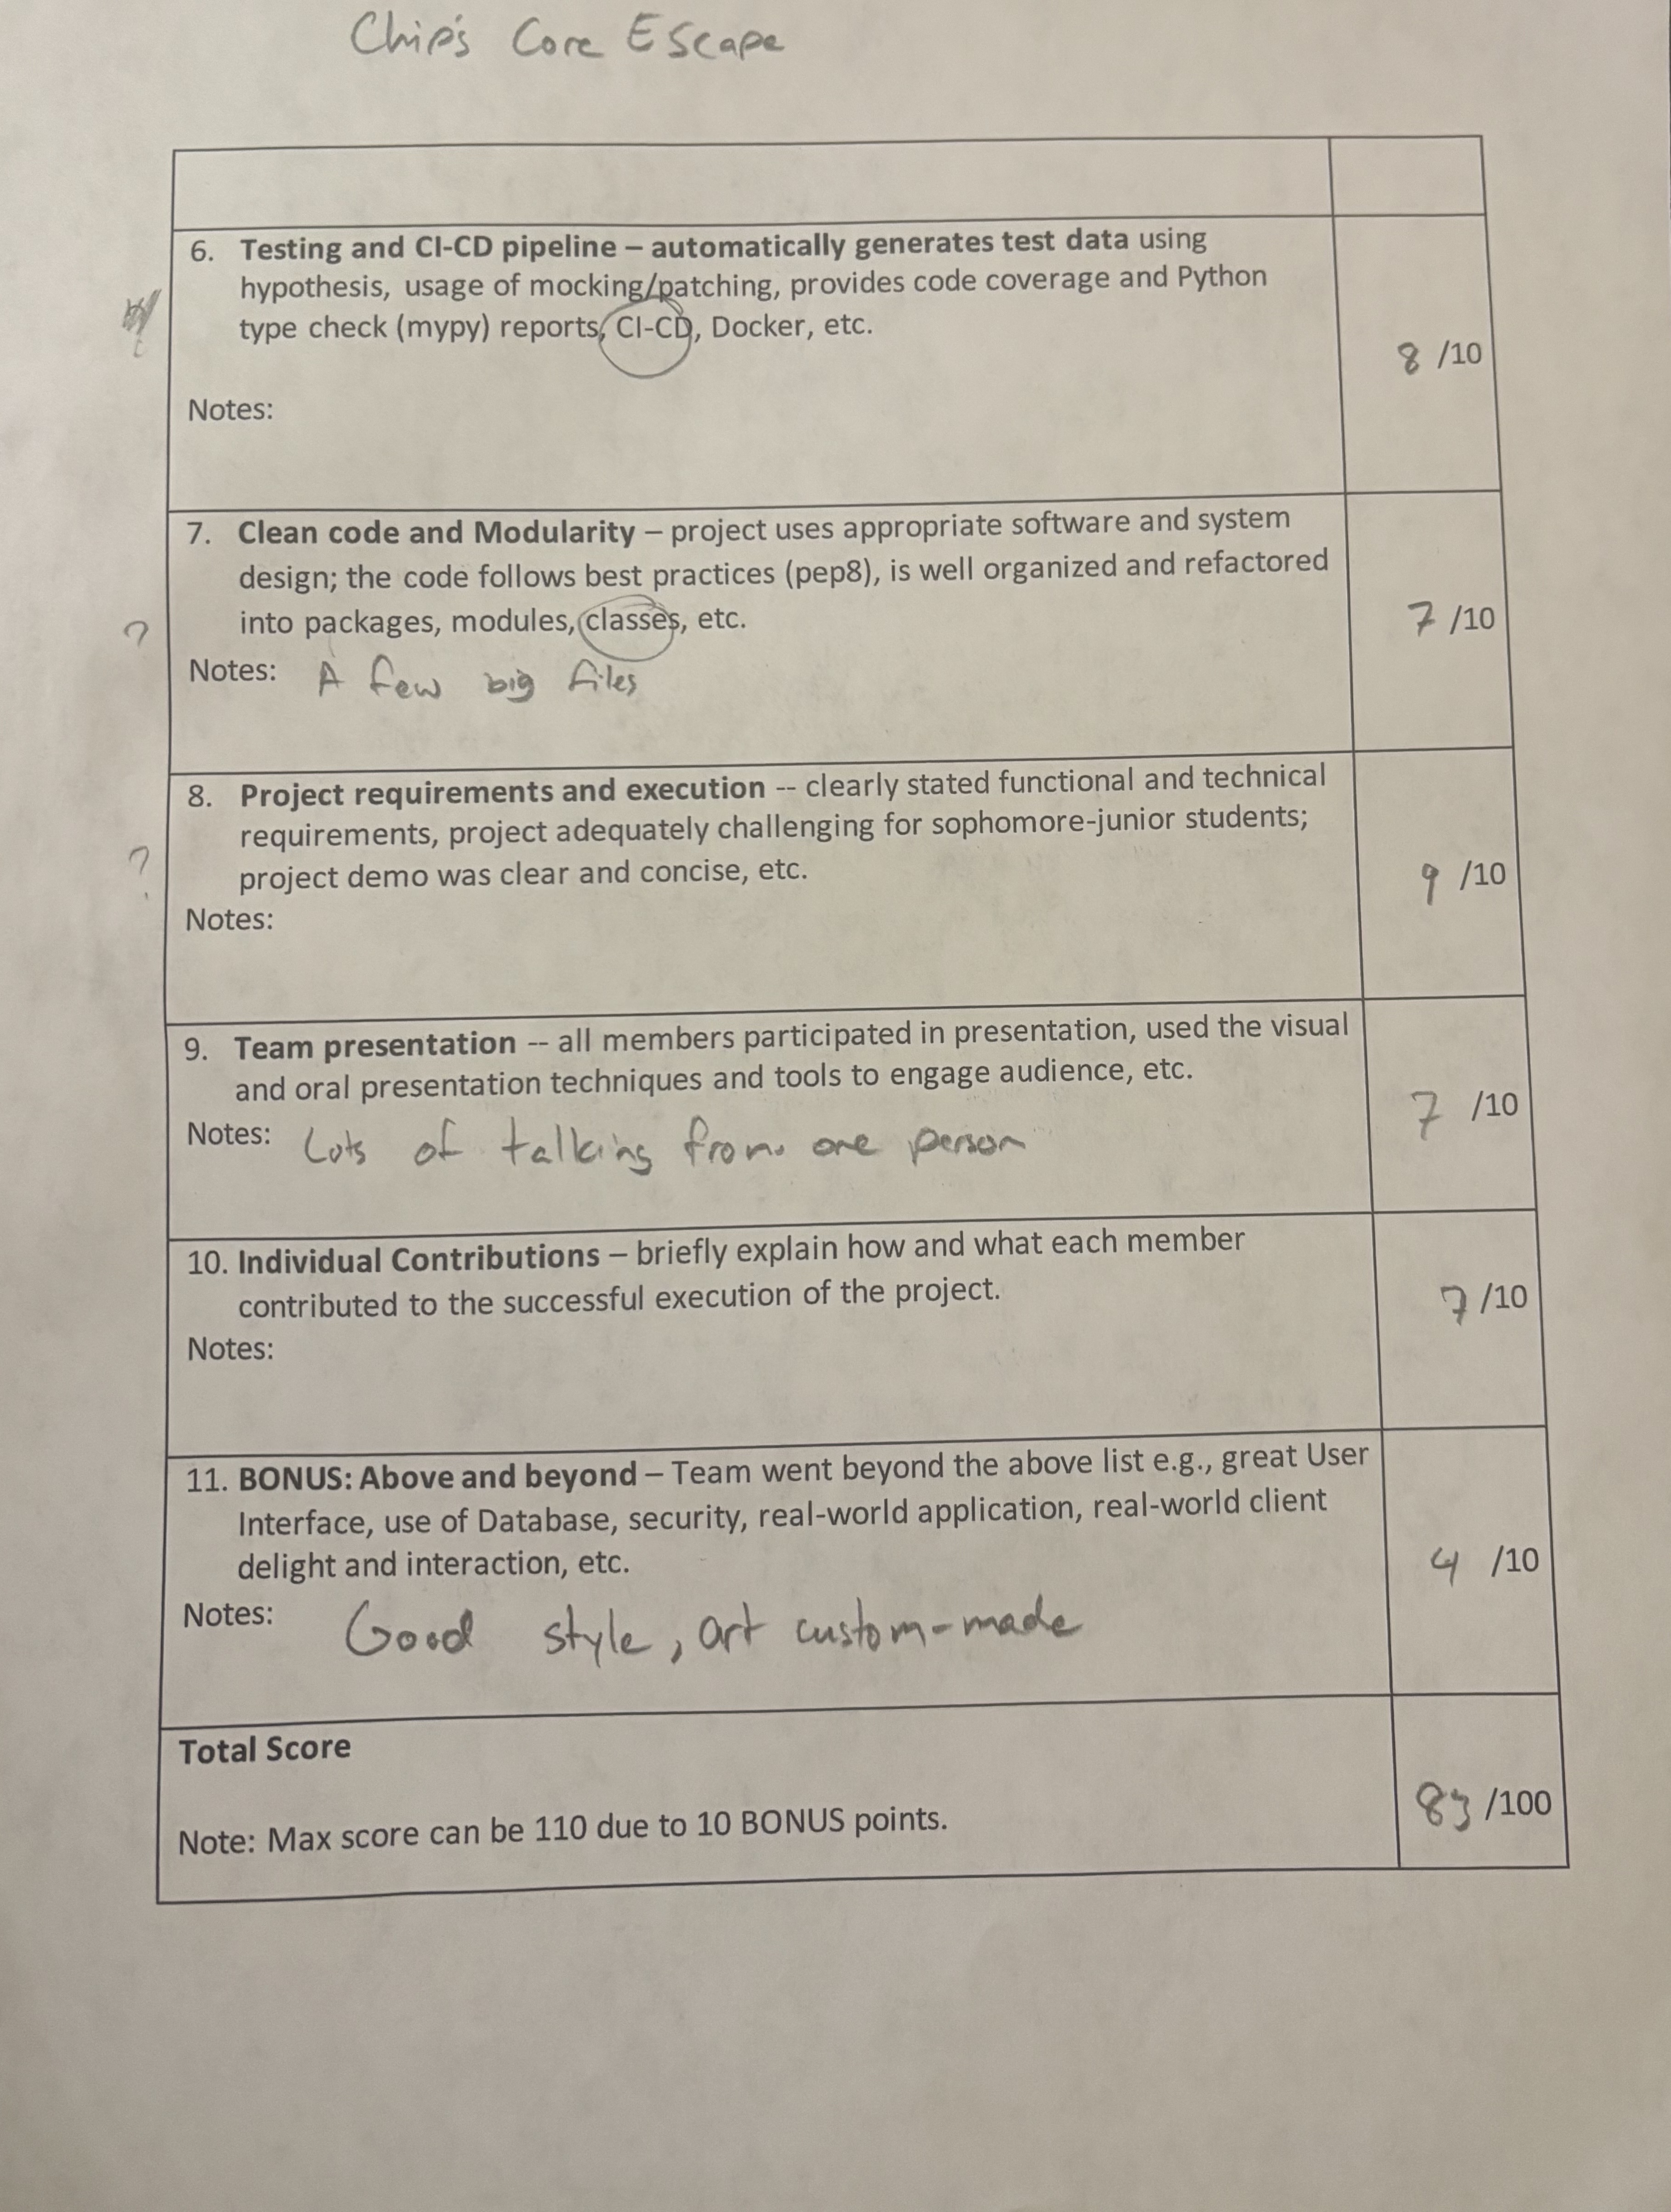 Chip's Core Escape
6. Testing and CI-CD pipeline – automatically generates test data using
hypothesis, usage of mocking/patching, provides code coverage and Python
type check (mypy) reports, CI-CD, Docker, etc.
8 /10
Notes:
7. Clean code and Modularity – project uses appropriate software and system
design; the code follows best practices (pep8), is well organized and refactored
? into packages, modules, classes, etc.
7 /10
Notes: A few big files
8. Project requirements and execution -- clearly stated functional and technical
requirements, project adequately challenging for sophomore-junior students;
? project demo was clear and concise, etc.
9 /10
Notes:
9. Team presentation -- all members participated in presentation, used the visual
and oral presentation techniques and tools to engage audience, etc.
7 /10
Notes: Lots of talking from one person
10. Individual Contributions – briefly explain how and what each member
contributed to the successful execution of the project.
7 /10
Notes:
11. BONUS: Above and beyond – Team went beyond the above list e.g., great User
Interface, use of Database, security, real-world application, real-world client
delight and interaction, etc.
4 /10
Notes: Good style, art custom-made
Total Score
83 /100
Note: Max score can be 110 due to 10 BONUS points.